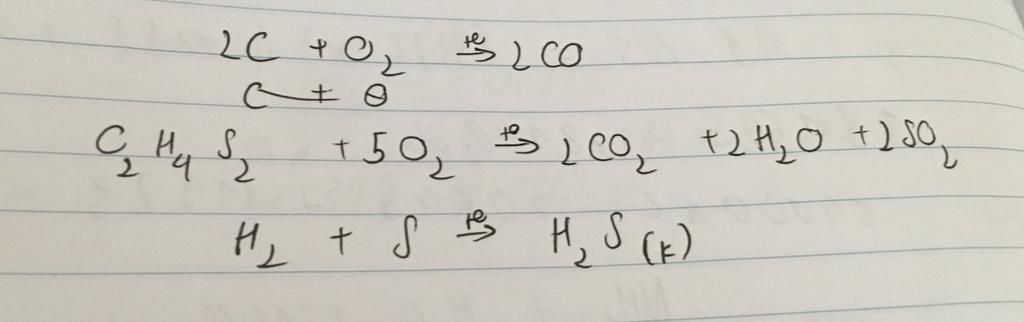 2C + O₂ t°→ 2CO
C + O
C₂H₄S₂ + 5O₂ t°→ 2CO₂ + 2H₂O + 2SO₂
H₂ + S t°→ H₂S (k)